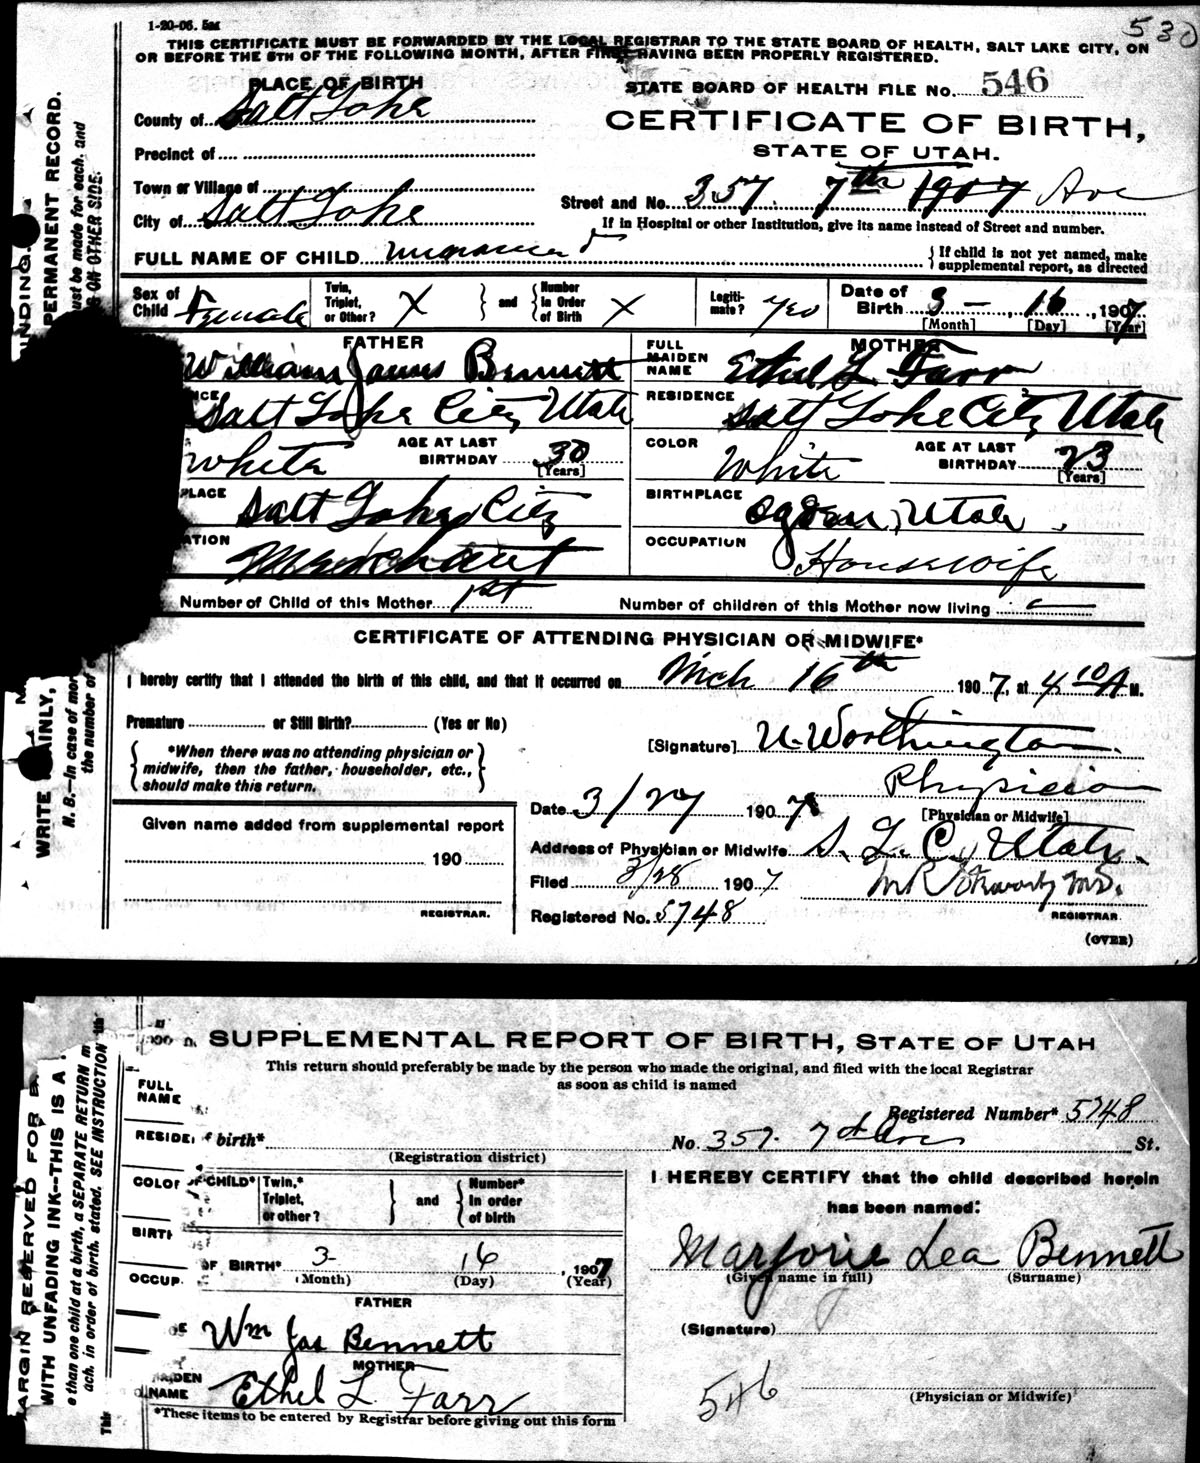 1-20-06. 5m
530
THIS CERTIFICATE MUST BE FORWARDED BY THE LOCAL REGISTRAR TO THE STATE BOARD OF HEALTH, SALT LAKE CITY, ON
OR BEFORE THE 5TH OF THE FOLLOWING MONTH, AFTER FIRST HAVING BEEN PROPERLY REGISTERED.
PLACE OF BIRTH
STATE BOARD OF HEALTH FILE No. 546
County of Salt Lake
CERTIFICATE OF BIRTH,
Precinct of
STATE OF UTAH.
Town or Village of
Street and No. 357 7th 1907 Ave
City of Salt Lake
If in Hospital or other Institution, give its name instead of Street and number.
FULL NAME OF CHILD unnamed
{ If child is not yet named, make
supplemental report, as directed
Sex of Child Female
Twin, Triplet, or Other? X } and { Number in Order of Birth X
Legiti-mate? yes
Date of Birth 3 - 16, 1907
[Month] [Day] [Year]
FATHER
William James Bennett
FULL MAIDEN NAME
MOTHER
Ethel L. Farr
CE Salt Lake City Utah
RESIDENCE Salt Lake City Utah
White AGE AT LAST BIRTHDAY 30 [Years]
COLOR White AGE AT LAST BIRTHDAY 23 [Years]
PLACE Salt Lake City
BIRTHPLACE Ogden, Utah.
ATION Merchant
OCCUPATION Housewife
Number of Child of this Mother 1st
Number of children of this Mother now living
CERTIFICATE OF ATTENDING PHYSICIAN OR MIDWIFE*
I hereby certify that I attended the birth of this child, and that it occurred on Mch 16th 1907, at 4 10 A M.
Premature or Still Birth? (Yes or No)
{ *When there was no attending physician or
midwife, then the father, householder, etc.,
should make this return. }
[Signature] U. Worthington
Physician
[Physician or Midwife]
Date 3/27 1907
Given name added from supplemental report
190
REGISTRAR.
Address of Physician or Midwife S. L. C., Utah.
Filed 3/28 1907
M.D.
REGISTRAR
Registered No. 5748
(OVER)
INDING.
PERMANENT RECORD.
ust be made for each, and
S ON OTHER SIDE.
WRITE PLAINLY,
N. B.—In case of mor
the number of
SUPPLEMENTAL REPORT OF BIRTH, STATE OF UTAH
This return should preferably be made by the person who made the original, and filed with the local Registrar
as soon as child is named
FULL NAME
Registered Number* 5748
RESIDE
f birth*
(Registration district)
No. 357. 7th Ave St.
COLOR
OF CHILD*
Twin,* Triplet, or other? } and { Number* In order of birth
I HEREBY CERTIFY that the child described herein
has been named:
BIRTH
OF BIRTH* 3- 16, 1907
(Month) (Day) (Year)
Marjorie Lea Bennett
(Given name in full) (Surname)
OCCUP
FATHER
OF Wm Jas Bennett
(Signature)
MOTHER
MAIDEN NAME Ethel L. Farr
546
(Physician or Midwife)
*These items to be entered by Registrar before giving out this form
ARGIN RESERVED FOR B
WITH UNFADING INK—THIS IS A
e than one child at a birth, a SEPARATE RETURN m
ach, in order of birth, stated. SEE INSTRUCTION
This